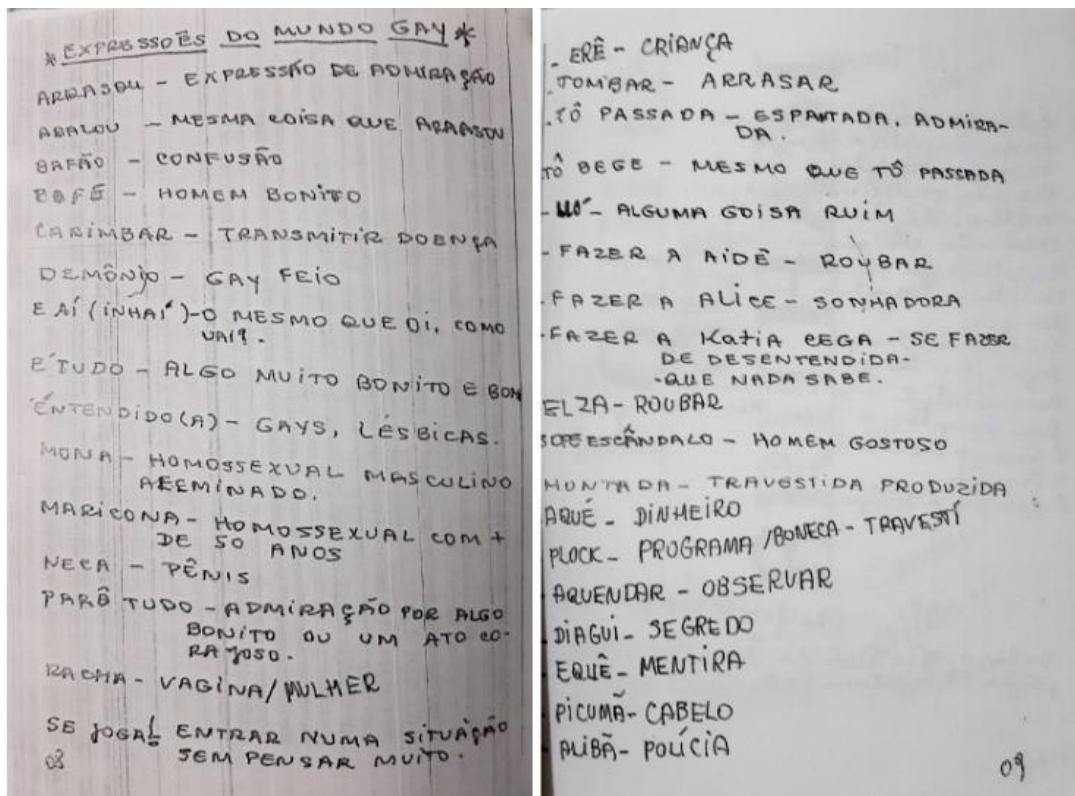 * EXPRESSÕES DO MUNDO GAY *
ARRASOU - EXPRESSÃO DE ADMIRAÇÃO
ABALOU - MESMA COISA QUE ARRASOU
BAFÃO - CONFUSÃO
BOFE - HOMEM BONITO
CARIMBAR - TRANSMITIR DOENÇA
DEMÔNIO - GAY FEIO
E AÍ (INHAÍ) - O MESMO QUE OI, COMO
VAI?.
É TUDO - ALGO MUITO BONITO E BOM
ENTENDIDO(A) - GAYS, LÉSBICAS.
MONA - HOMOSSEXUAL MASCULINO
AFEMINADO.
MARICONA - HOMOSSEXUAL COM +
DE 50 ANOS
NECA - PÊNIS
PARÔ TUDO - ADMIRAÇÃO POR ALGO
BONITO OU UM ATO CO-
RAJOSO.
RACHA - VAGINA/MULHER
SE JOGA! ENTRAR NUMA SITUAÇÃO
SEM PENSAR MUITO.
08
- ERÊ - CRIANÇA
. TOMBAR - ARRASAR
. TÔ PASSADA - ESPANTADA. ADMIRA-
DA.
TÔ BEGE - MESMO QUE TÔ PASSADA
- UÓ - ALGUMA COISA RUIM
- FAZER A AIDÊ - ROUBAR
- FAZER A ALICE - SONHADORA
- FAZER A Katia CEGA - SE FAZER
DE DESENTENDIDA -
- QUE NADA SABE.
ELZA - ROUBAR
ESCÂNDALO - HOMEM GOSTOSO
MONTADA - TRAVESTIDA PRODUZIDA
AQUÉ - DINHEIRO
PLOCK - PROGRAMA / BONECA - TRAVESTÍ
AQUENDAR - OBSERVAR
DIAGUI - SEGREDO
EQUÊ - MENTIRA
PICUMÃ - CABELO
ALIBÃ - POLÍCIA
09